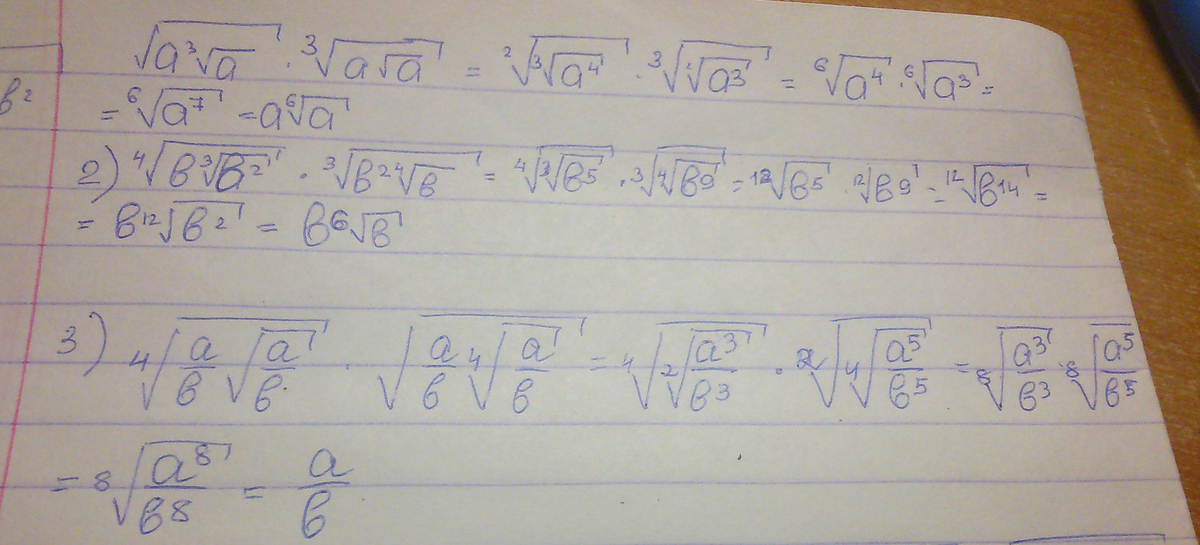 √(a ³√a) · ³√(a √a) = ²√(³√(a⁴)) · ³√(²√(a³)) = ⁶√(a⁴) · ⁶√(a³) =
в²
= ⁶√(a⁷) = a ⁶√a
2) ⁴√(в ³√(в²)) · ³√(в² ⁴√в) = ⁴√(³√(в⁵)) · ³√(⁴√(в⁹)) = ¹²√(в⁵) · ¹²√(в⁹) = ¹²√(в¹⁴) =
= в ¹²√(в²) = в ⁶√в
3) ⁴√(a/в √(a/в)) · √(a/в ⁴√(a/в)) = ⁴√(²√(a³/в³)) · ²√(⁴√(a⁵/в⁵)) = ⁸√(a³/в³) · ⁸√(a⁵/в⁵)
= ⁸√(a⁸/в⁸) = a/в